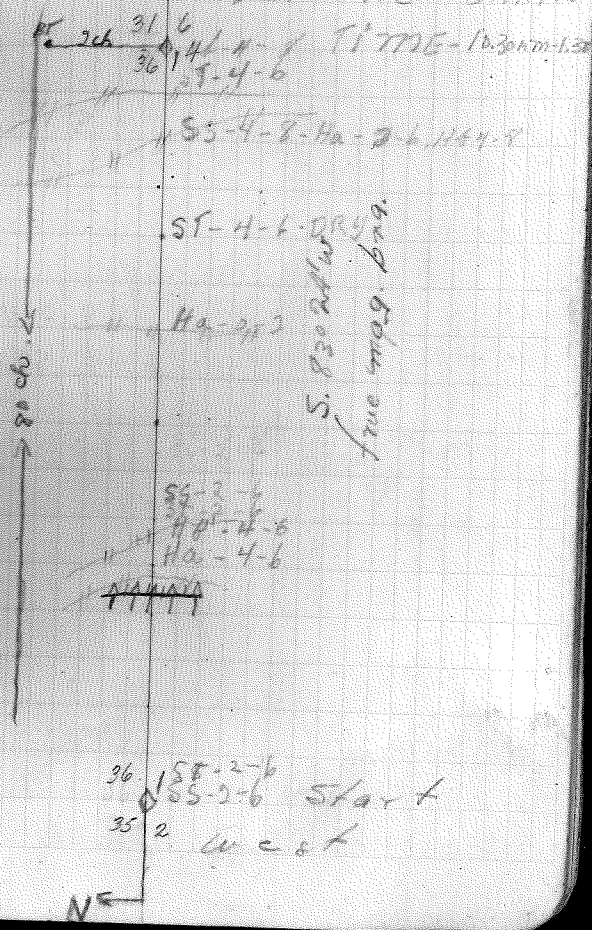 31 6
pt 7ch
36 1
TIME-10.30am-1.30
ST-4-6
SS-4-8-Ha-2-6
ST-4-6-DRY
Ha-2-2
S. 83° 24' W
true mag. brg.
80 ch.
SS-2-6
4-6
Ha-4-6
36 1 ST-2-6
SS-2-6 Start
35 2
west
N